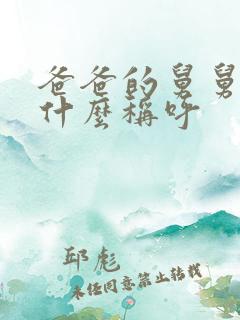 爸爸的舅舅
什麼稱呼
邱彪
未经同意禁止转载